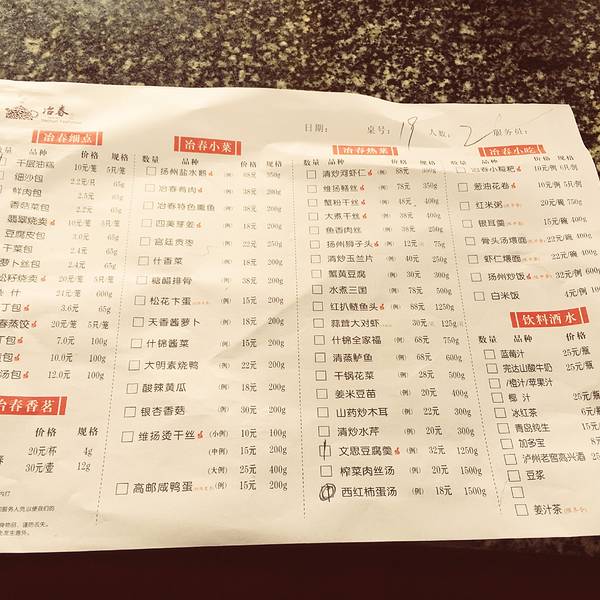 冶春
日期： 桌号：19 人数：2 服务员：
冶春细点
品种 价格 规格
千层油糕 10元/笼 5只/笼
细沙包 2.2元/只 65g
鲜肉包 2.5元 65g
香菇菜包 2.2元 65g
翡翠烧卖 20元/笼 5只/笼
豆腐皮包 3.0元 65g
干菜包 2.4元 65g
萝卜丝包 2.2元 65g
松籽烧卖 20元/笼 5只/笼
什 24元/笼 600g
丁包 3.6元 65g
春蒸饺 20元/笼 5只/笼
丁包 7.0元 100g
包 10.0元 100g
汤包 12.0元 100g
冶春香茗
价格 规格
20元/杯 4g
30元/壶 12g
冶春小菜
数量 品种 价格 规格
扬州盐水鹅 (例) 68元 350g
冶春肴肉 (例) 38元 200g
冶春特色熏鱼 (例) 38元 200g
四美芽姜 (例) 18元 200g
宫廷贡枣 (例) 22元 250g
什香菜 (例) 18元 200g
糖醋排骨 (例) 38元 200g
松花卞蛋 (例) 15元 200g
天香酱萝卜 (例) 18元 200g
什锦酱菜 (例) 15元 200g
大明素烧鸭 (例) 22元 200g
酸辣黄瓜 (例) 18元 200g
银杏香菇 (例) 30元 200g
维扬烫干丝 (小例) 10元 100g
(中例) 15元 200g
(大例) 25元 400g
高邮咸鸭蛋 (例) 15元 200g
冶春热菜
数量 品种 价格 规格
清炒河虾仁 (例) 88元 300g
维扬鳝丝 (例) 78元 350g
蟹粉干丝 (例) 48元 400g
大煮干丝 (例) 38元 400g
鱼香肉丝 (例) 38元 250g
扬州狮子头 (例) 12元 75g
清炒玉兰片 (例) 10元 250g
蟹黄豆腐 (例) 30元 300g
水煮三国 (例) 78元 500g
红扒鲢鱼头 (例) 88元 1250g
蒜茸大对虾 30元 125g
什锦全家福 (例) 68元 750g
清蒸鲈鱼 (例) 68元 600g
干锅花菜 (例) 28元 500g
姜米豆苗 (例) 20元 400g
山药炒木耳 (例) 22元 300g
清炒水芹 (例) 20元 300g
文思豆腐羹 (例) 32元 1250g
榨菜肉丝汤 (例) 20元 1500g
西红柿蛋汤 (例) 18元 1500g
冶春小吃
数量 品种 价格 规格
冶春小糍粑 (例) 10元/例 6只/例
葱油花卷 (例) 10元/例 5只/例
红米粥 20元/碗 750g
银耳羹 15元/碗 400g
骨头汤煨面 22元/碗 400g
虾仁煨面 22元/碗 100g
扬州炒饭 (例) 32元/例 600g
白米饭 4元/例
饮料酒水
数量 品种 价格
蓝莓汁 25元/瓶
完达山酸牛奶 25元/瓶
/橙汁/苹果汁
椰 汁 25元/瓶
冰红茶 6元/瓶
青岛纯生 15元/瓶
加多宝 8元
泸州老窖高兴酒 25元
豆浆
姜汁茶